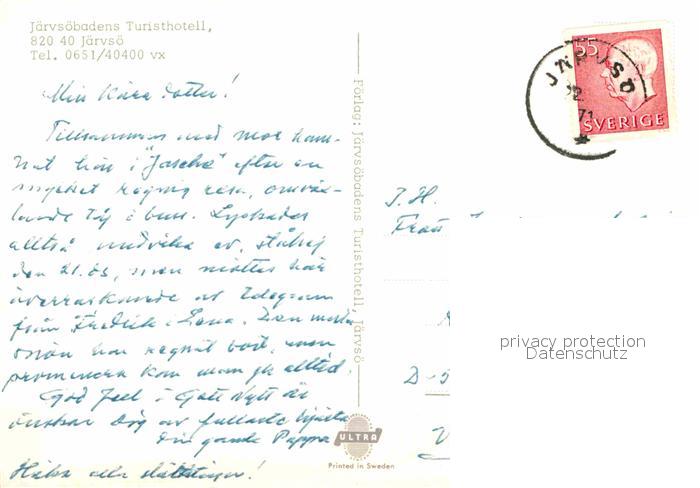 Järvsöbadens Turisthotell,
820 40 Järvsö
Tel. 0651/40400 vx
Min kära dotter!
Tillsammans med mor ham-
nat här i "Järvsö" efter en
mycket regnig resa, omväx-
lande tåg o buss. Lyckades
alltså undvika ev. ståhej
den 21. ds, men möttes här
överraskande av telegram
från Fredrik o Lena. Den
har regnat bort, men
promenera kan man ju alltid.
God Jul o Gott Nytt år
önskar Dig av fullaste hjärta
Din gamle Pappa
Hälsa alla släktingar!
Förlag: Järvsöbadens Turisthotell, Järvsö
ULTRA
Printed in Sweden
55
SVERIGE
JÄRVSÖ
71
T.H.
Frau
D-5
privacy protection
Datenschutz